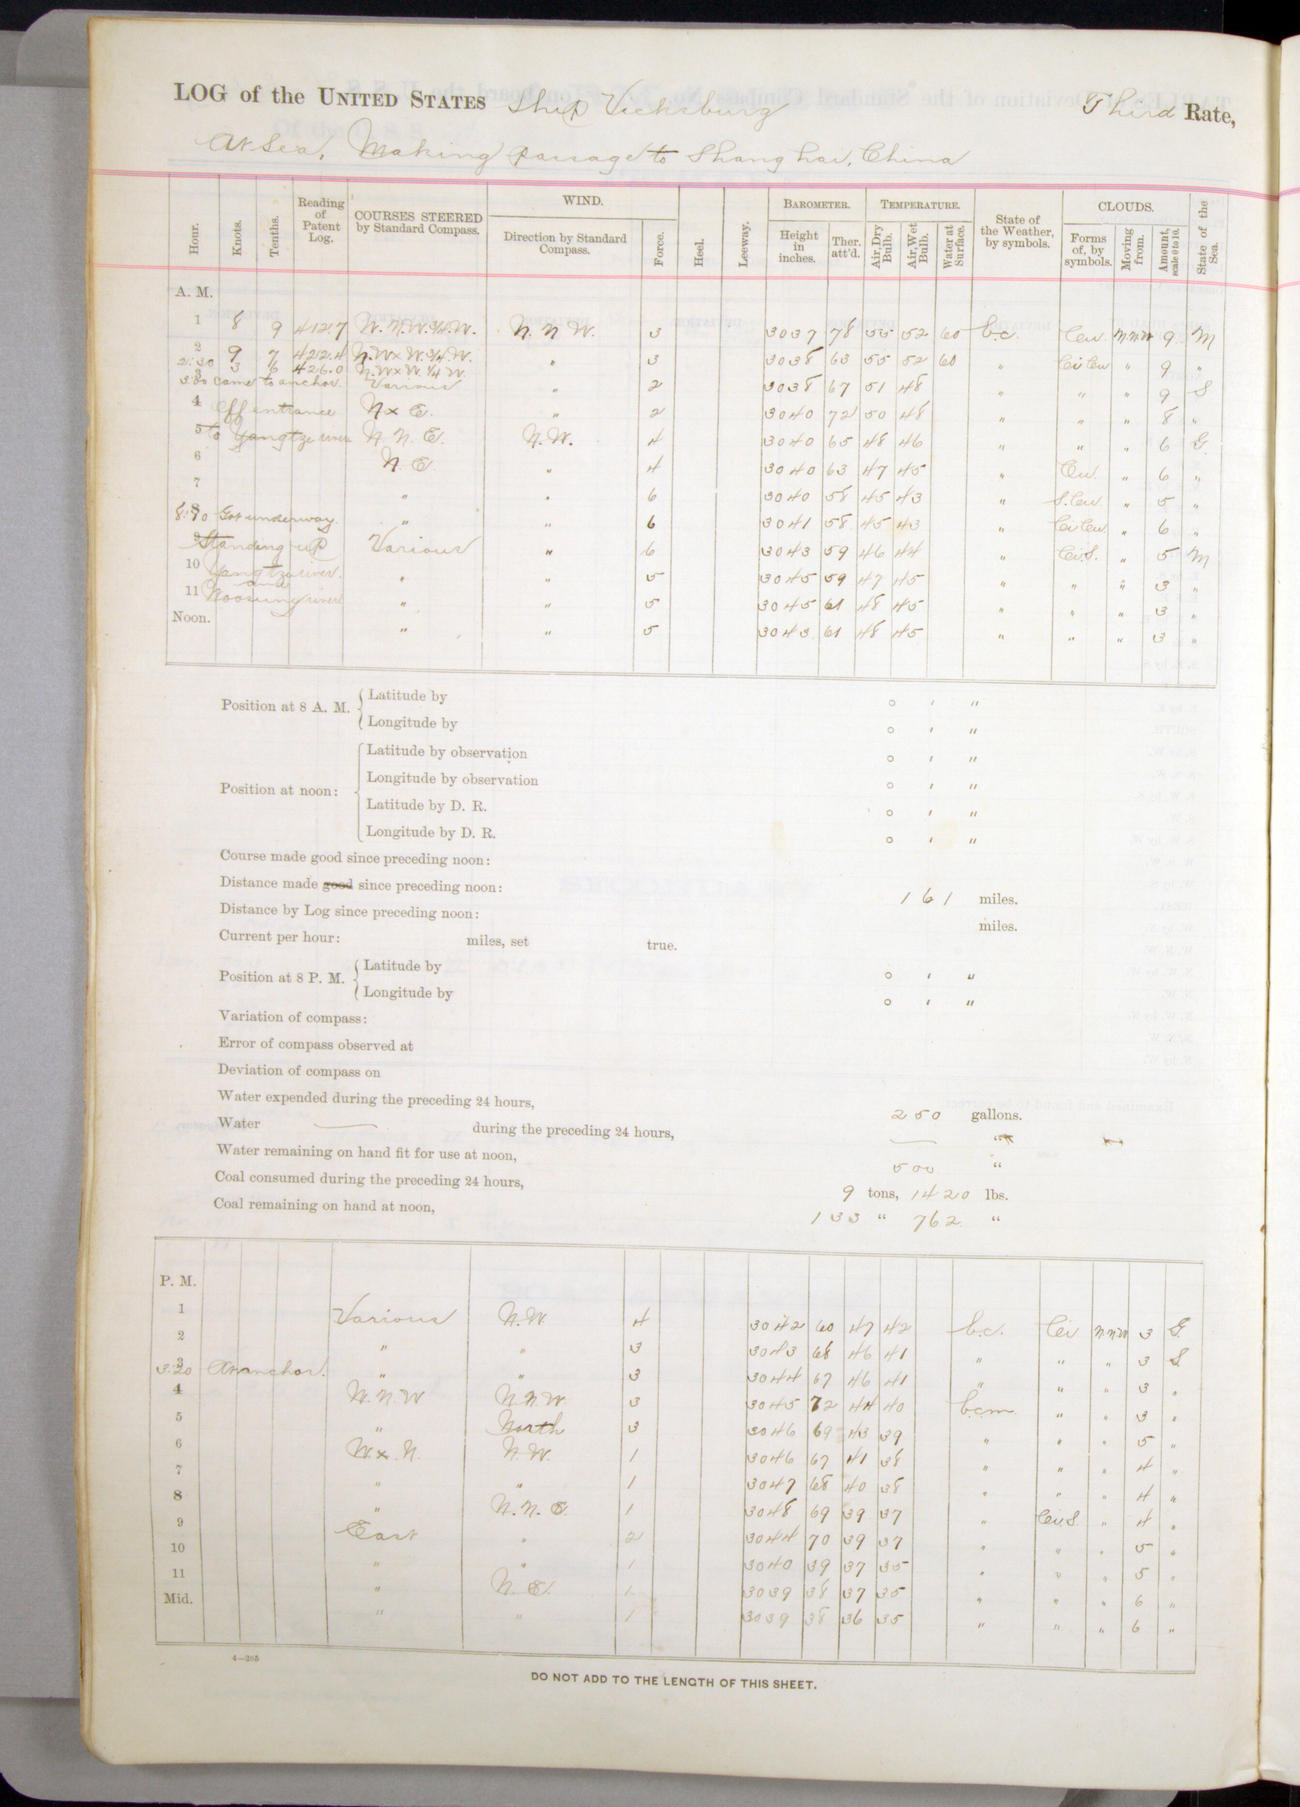 LOG of the UNITED STATES Ship Vicksburg Third Rate,
At Sea, Making passage to Shanghai, China
Hour. Knots. Tenths. Reading of Patent Log. COURSES STEERED by Standard Compass. WIND. Direction by Standard Compass. Force. Heel. Leeway. BAROMETER. Height in inches. Ther. att'd. TEMPERATURE. Air, Dry Bulb. Air, Wet Bulb. Water at Surface. State of the Weather, by symbols. CLOUDS. Forms of, by symbols. Moving from. Amount, scale 0 to 10. State of the Sea.
A. M.
1 8 9 412.7 N.N.W. 3/4 W. N N W. 3 3037 78 55 52 60 b.c. Cu NNW 9 M
2 9 7 422.4 N.W x W. 3/4 W. " 3 3038 63 55 52 60 " Ci Cu " 9 "
2:30 3 6 426.0 N.W x W. 1/4 W.
3 Various " 2 3038 67 51 48 " " " 9 S
3:30 came to anchor.
4 off entrance N x E. " 2 3040 72 50 48 " " " 8 "
5 to Yangtze river N N. E. N.W. 4 3040 65 48 46 " " " 6 G.
6 N. E. " 4 3040 63 47 45 " Cu " 6 "
7 " " 6 3040 58 45 43 " S. Cu. " 5 "
8 " " 6 3041 58 45 43 " Ci Cu " 6 "
8:10 Got underway.
9 Standing up Various " 6 3043 59 46 44 " Ci S. " 5 M
10 Yangtze river. " " 5 3045 59 47 45 " " " 3 "
and
11 Woosung river " " 5 3045 61 48 45 " " " 3 "
Noon. " " 5 3043 61 48 45 " " " 3 "
Position at 8 A. M. Latitude by ° ' "
Longitude by ° ' "
Position at noon: Latitude by observation ° ' "
Longitude by observation ° ' "
Latitude by D. R. ° ' "
Longitude by D. R. ° ' "
Course made good since preceding noon:
Distance made good since preceding noon: 161 miles.
Distance by Log since preceding noon: miles.
Current per hour: miles, set true.
Position at 8 P. M. Latitude by ° ' "
Longitude by ° ' "
Variation of compass:
Error of compass observed at
Deviation of compass on
Water expended during the preceding 24 hours, 250 gallons.
Water — during the preceding 24 hours, — "
Water remaining on hand fit for use at noon, 500 "
Coal consumed during the preceding 24 hours, 9 tons, 1420 lbs.
Coal remaining on hand at noon, 133 " 762 "
P. M.
1 Various N.W 4 3042 60 47 42 b.c. Ci NNW 3 G.
2 " " 3 3043 68 46 41 " " " 3 S
3 " " 3 3044 67 46 41 " " " 3 "
3:20 At anchor.
4 W.N.W N N W 3 3045 72 44 40 b.c.m. " " 3 "
5 " North 3 3046 69 43 39 " " " 5 "
6 W x N. N. W. 1 3046 67 41 38 " " " 4 "
7 " " 1 3047 68 40 38 " " " 4 "
8 " N. N. E. 1 3048 69 39 37 " Ci S. " 4 "
9 East " 2 3044 70 39 37 " " " 5 "
10 " " 1 3040 39 37 35 " " " 5 "
11 " N. E. 1 3039 38 37 35 " " " 6 "
Mid. " " 1 3039 38 36 35 " " " 6 "
4—205
DO NOT ADD TO THE LENGTH OF THIS SHEET.